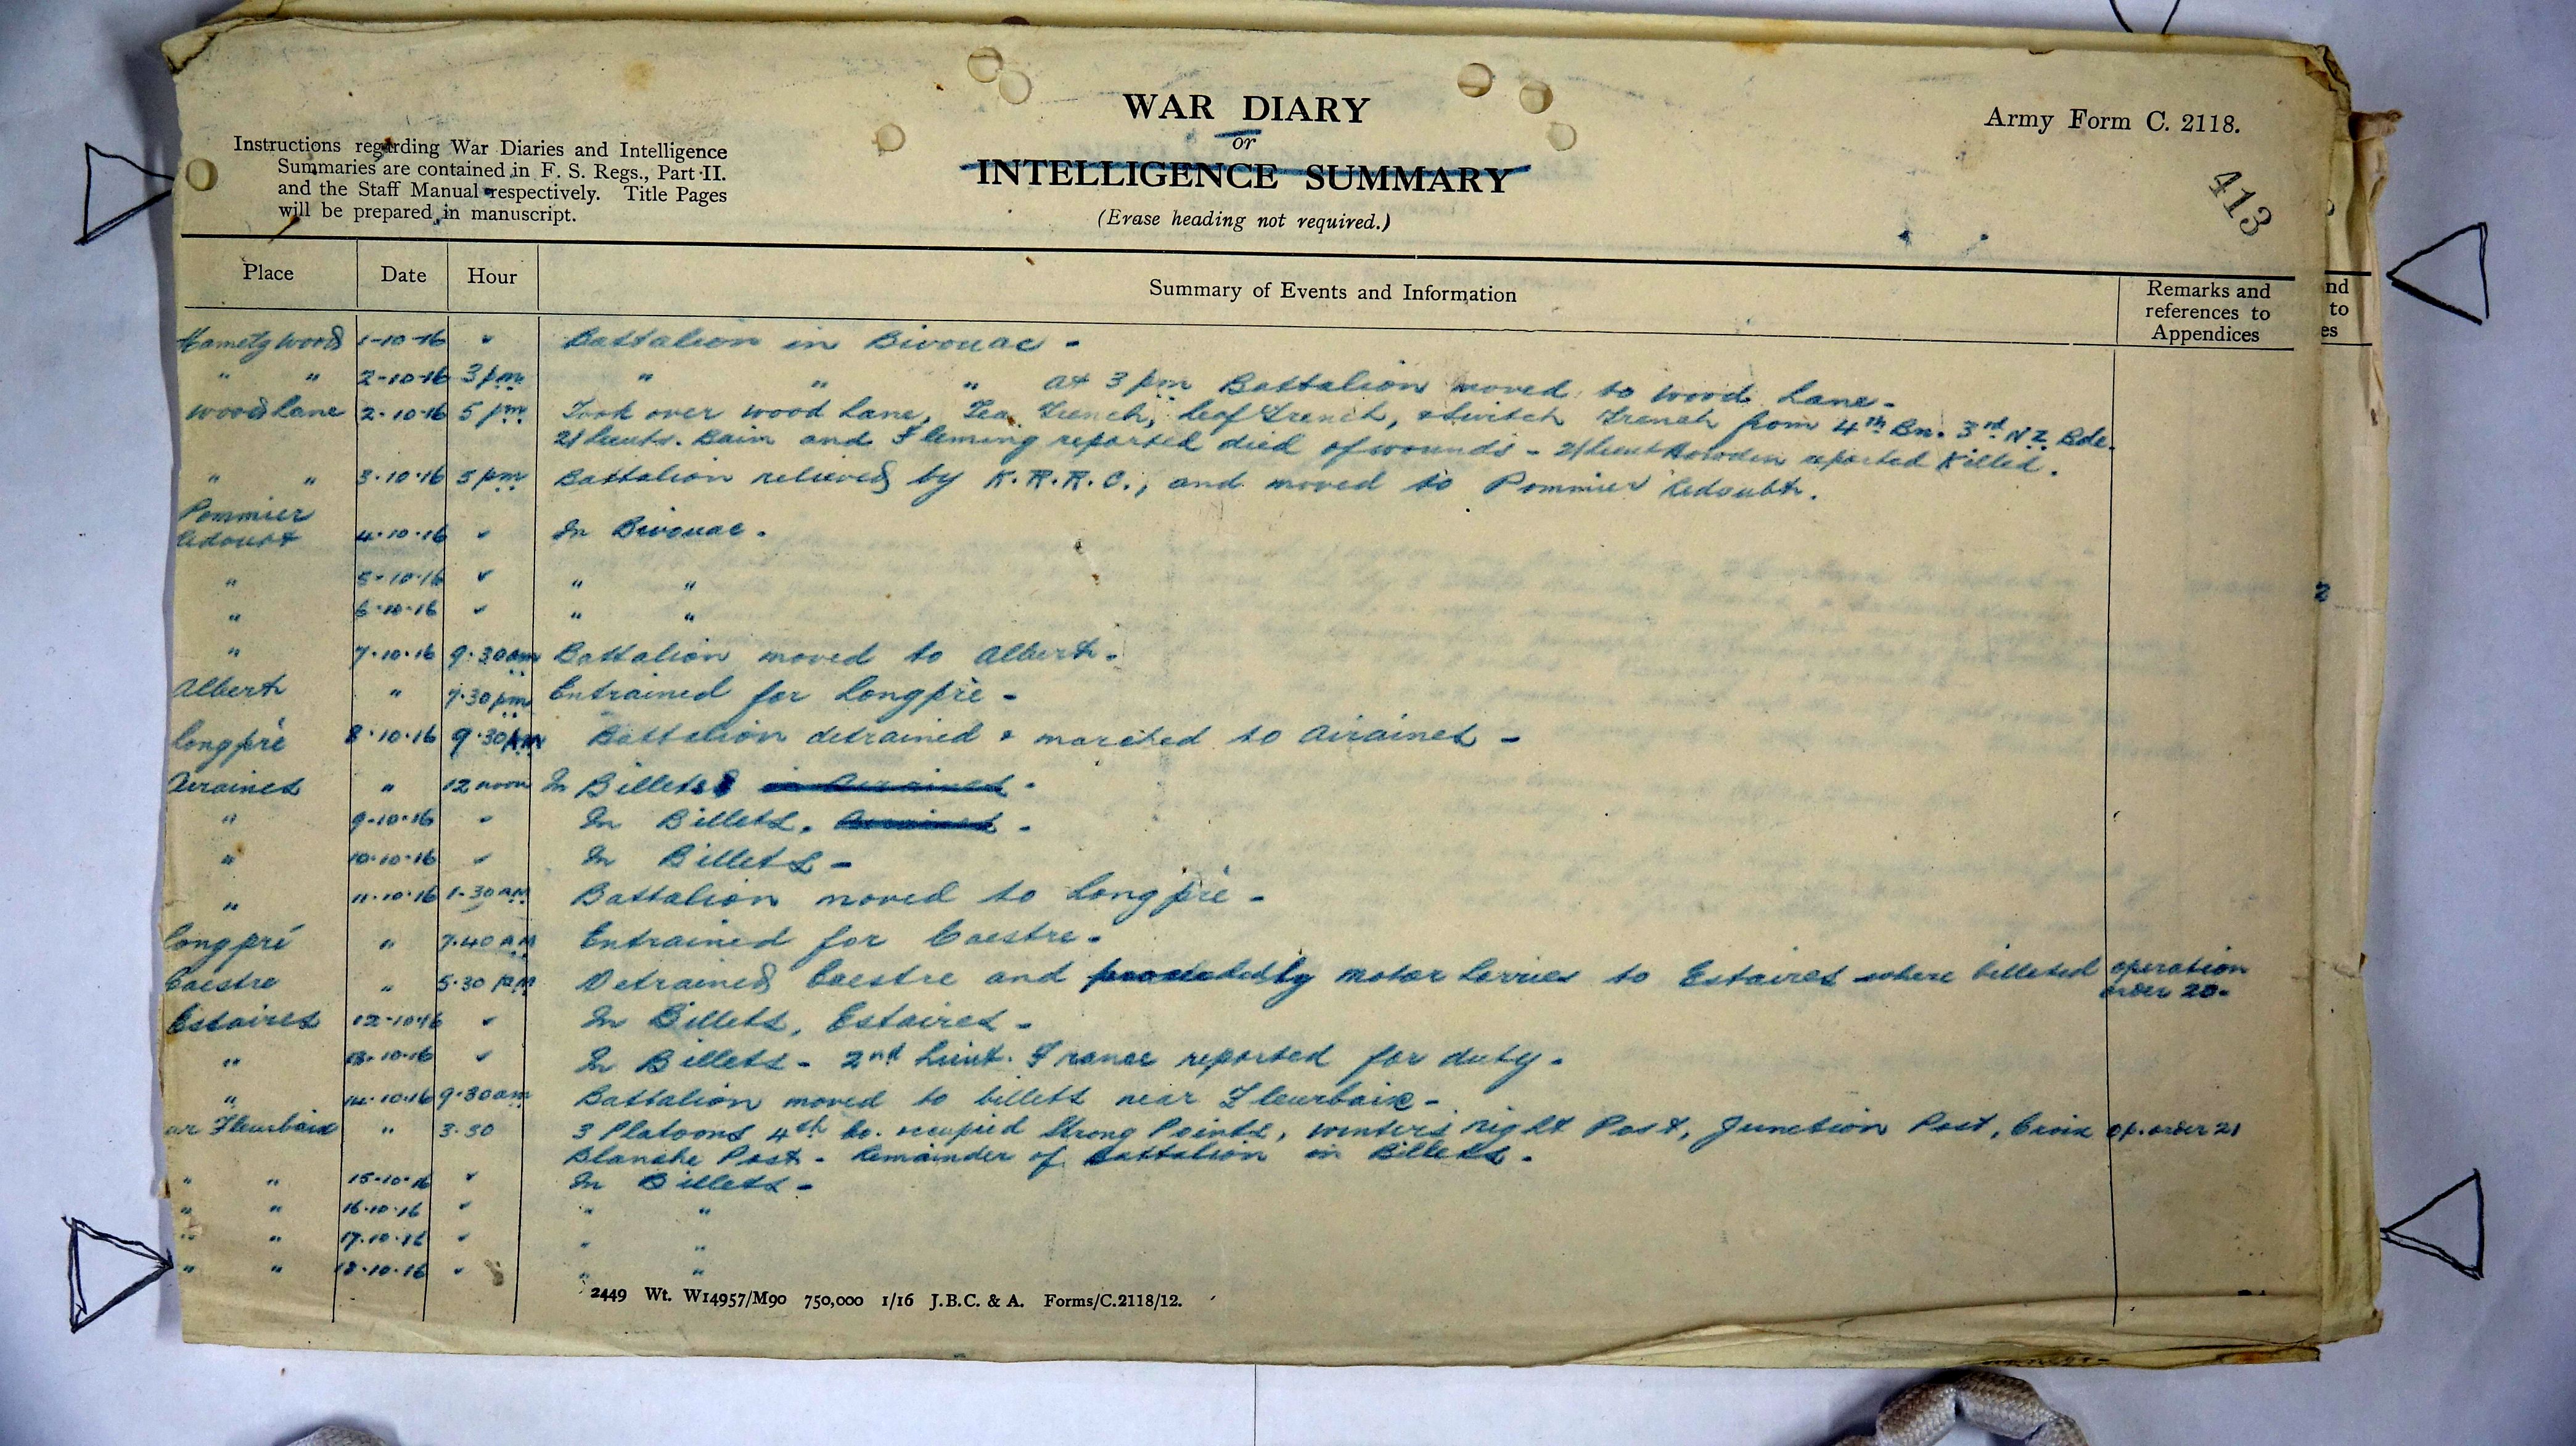 WAR DIARY
or
INTELLIGENCE SUMMARY
(Erase heading not required.)
Army Form C. 2118.
413
Instructions regarding War Diaries and Intelligence
Summaries are contained in F. S. Regs., Part II.
and the Staff Manual respectively. Title Pages
will be prepared in manuscript.
Place Date Hour Summary of Events and Information Remarks and references to Appendices
nd
to
es
Mametz Wood 1-10-16 Battalion in Bivouac -
" " 2-10-16 3 pm " " " at 3 pm Battalion moved to Wood Lane -
Wood Lane 2-10-16 5 pm Took over Wood Lane, Tea Trench, Leaf Trench, & Switch Trench from 4th Bn. 3rd N Z Bde.
2/Lieuts. Bain and Fleming reported died of wounds - 2/Lieut reported Killed.
" " 3-10-16 5 pm Battalion relieved by K.R.R.C., and moved to Pommier Redoubt.
Pommier
Redoubt 4-10-16 In Bivouac.
" 5-10-16 " "
" 6-10-16 " "
" 7-10-16 9.30am Battalion moved to Albert.
Albert " 7.30pm Entrained for Longpré -
Longpré 8-10-16 9.30 Battalion detrained & marched to Airaines -
Airaines " 12 noon In Billets in Airaines -
" 9-10-16 In Billets. Airaines -
" 10-10-16 In Billets -
" 11-10-16 1-30AM Battalion moved to Longpré -
Longpré " 7.40 AM Entrained for Caestre -
Caestre " 5.30 PM Detrained Caestre and proceeded by motor lorries to Estaires where billeted operation
order 20-
Estaires 12-10-16 In Billets, Estaires -
" 13-10-16 In Billets - 2nd Lieut. France reported for duty -
" 14-10-16 9.30am Battalion moved to billets near Fleurbaix -
nr Fleurbaix " 3.30 3 Platoons 4th Co. occupied Strong Points, Winters Night Post, Junction Post, Croix op. order 21
Blanche Post - Remainder of Battalion in Billets -
" " 15-10-16 In Billets -
" " 16-10-16 " "
" " 17-10-16 " "
" " 18-10-16 " "
2449 Wt. W14957/M90 750,000 1/16 J.B.C. & A. Forms/C.2118/12.